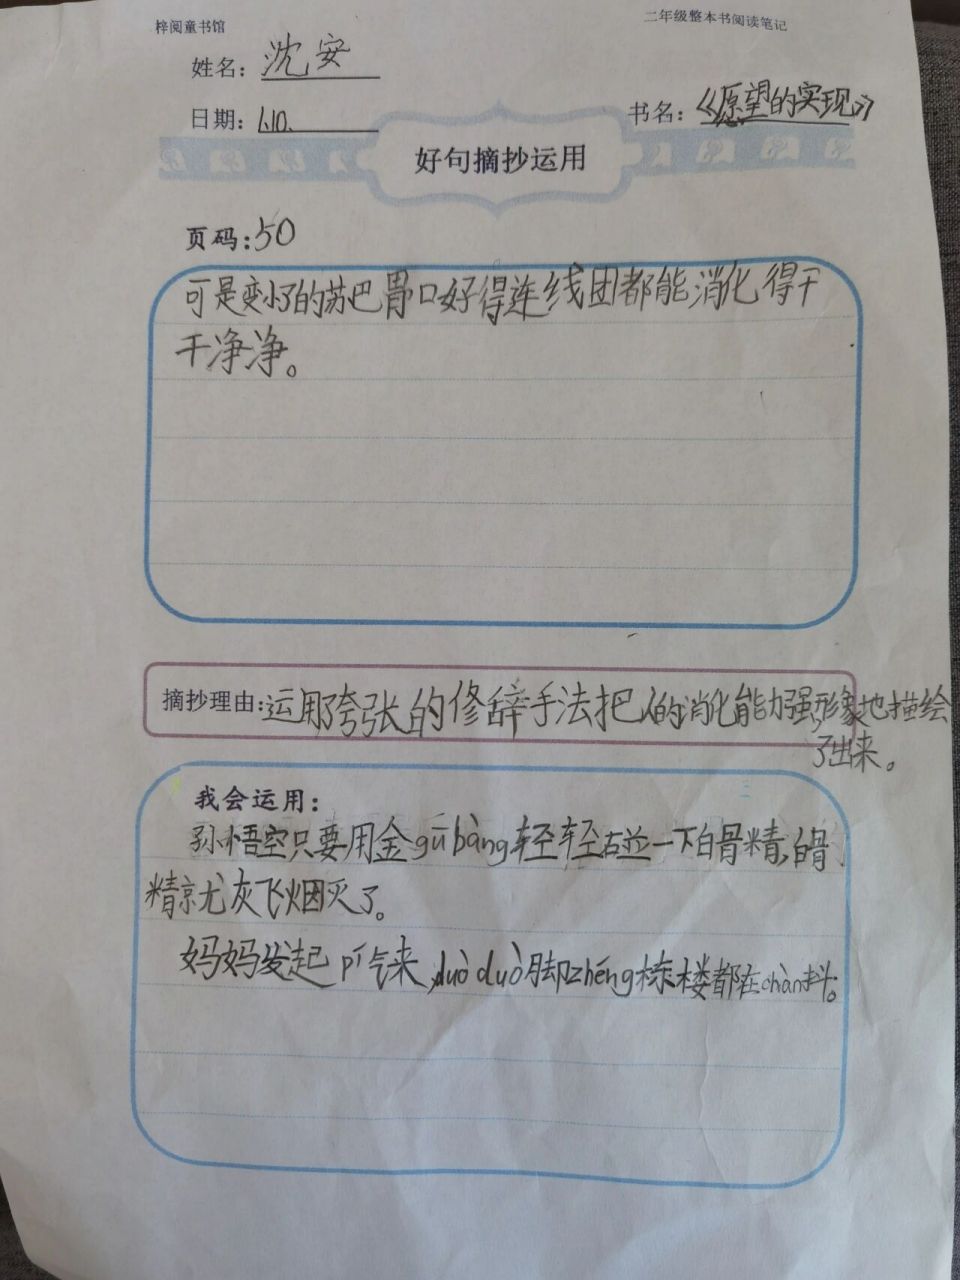 梓阅童书馆
二年级整本书阅读笔记
姓名：沈安
日期：1.10.
书名：《愿望的实现》
好句摘抄运用
页码：50
可是变小了的苏巴胃口好得连线团都能消化得干
干净净。
摘抄理由：运用夸张的修辞手法把人的消化能力强形象地描绘
了出来。
我会运用：
孙悟空只要用金gū bàng轻轻碰一下白骨精，白骨
精就灰飞烟灭了。
妈妈发起pí气来，duò duò脚zhěng栋楼都在chàn抖。